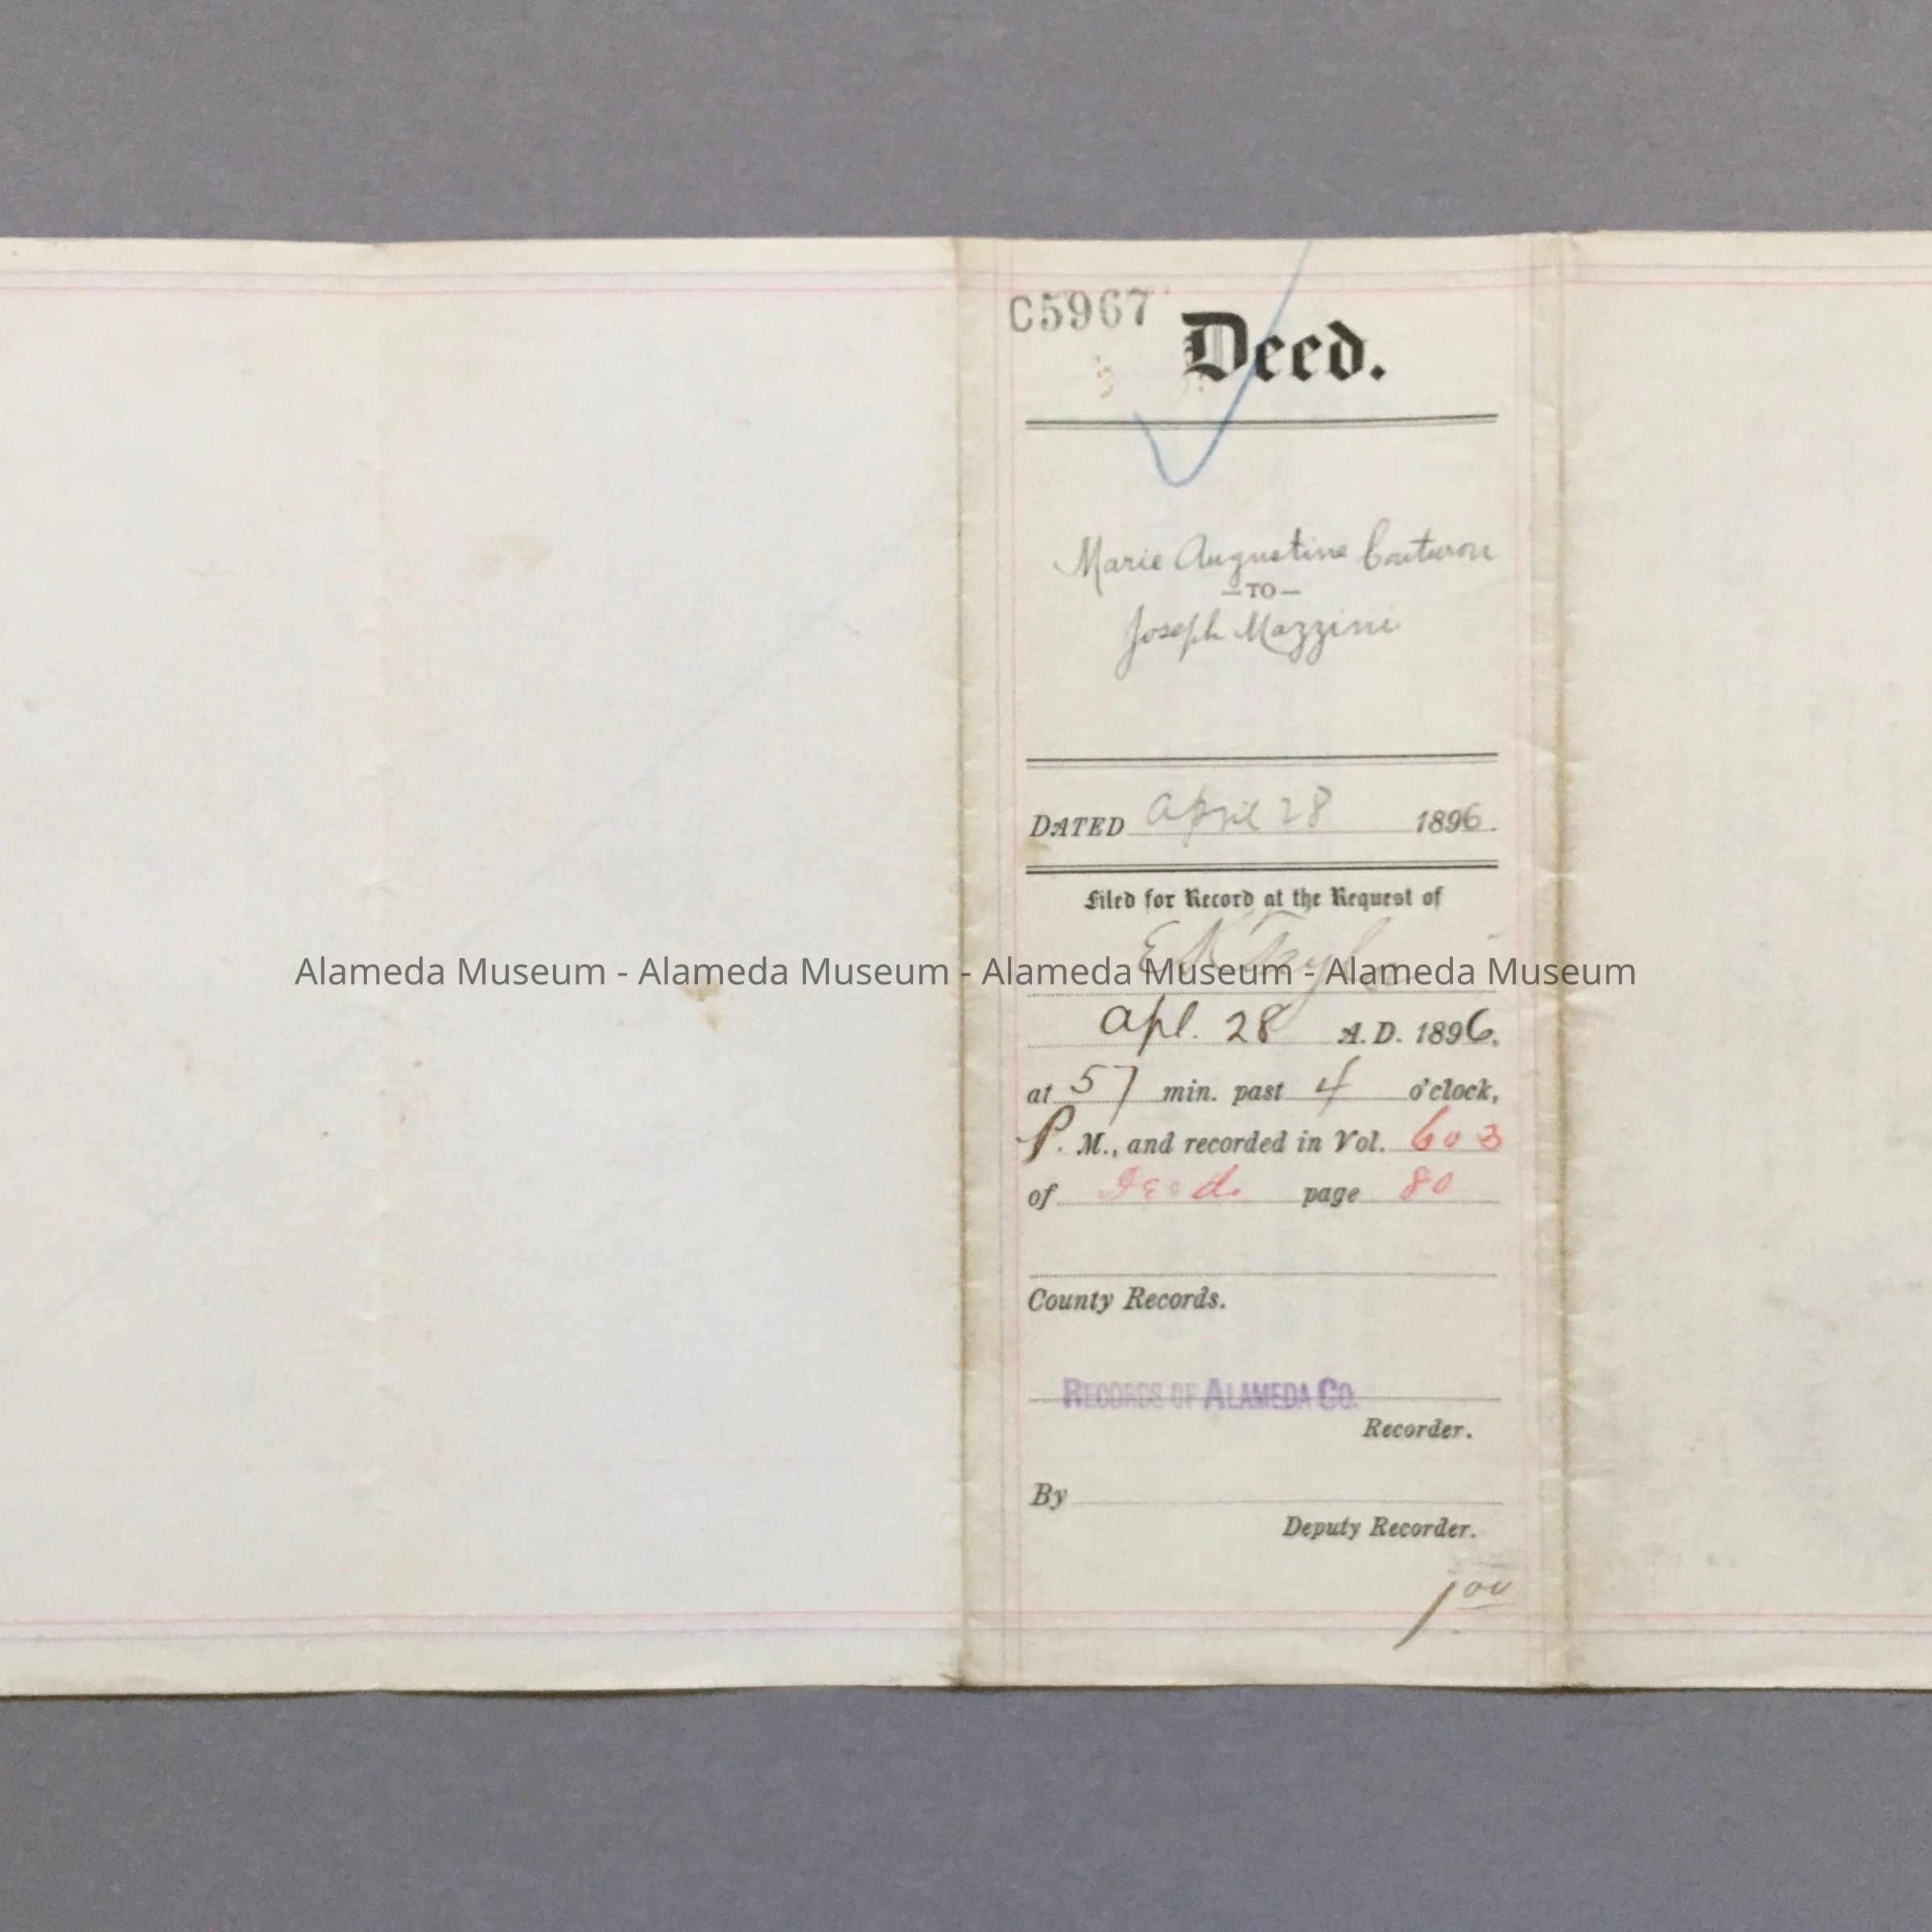 C5967
Deed.
Marie Augustine Couturon
— TO —
Joseph Mazzini
DATED April 28 1896.
Filed for Record at the Request of
E K Taylor
Alameda Museum - Alameda Museum - Alameda Museum - Alameda Museum
Apl. 28 A. D. 1896.
at 57 min. past 4 o'clock,
P. M., and recorded in Vol. 603
of Deeds page 80
County Records.
RECORDS OF ALAMEDA CO.
Recorder.
By
Deputy Recorder.
1 00